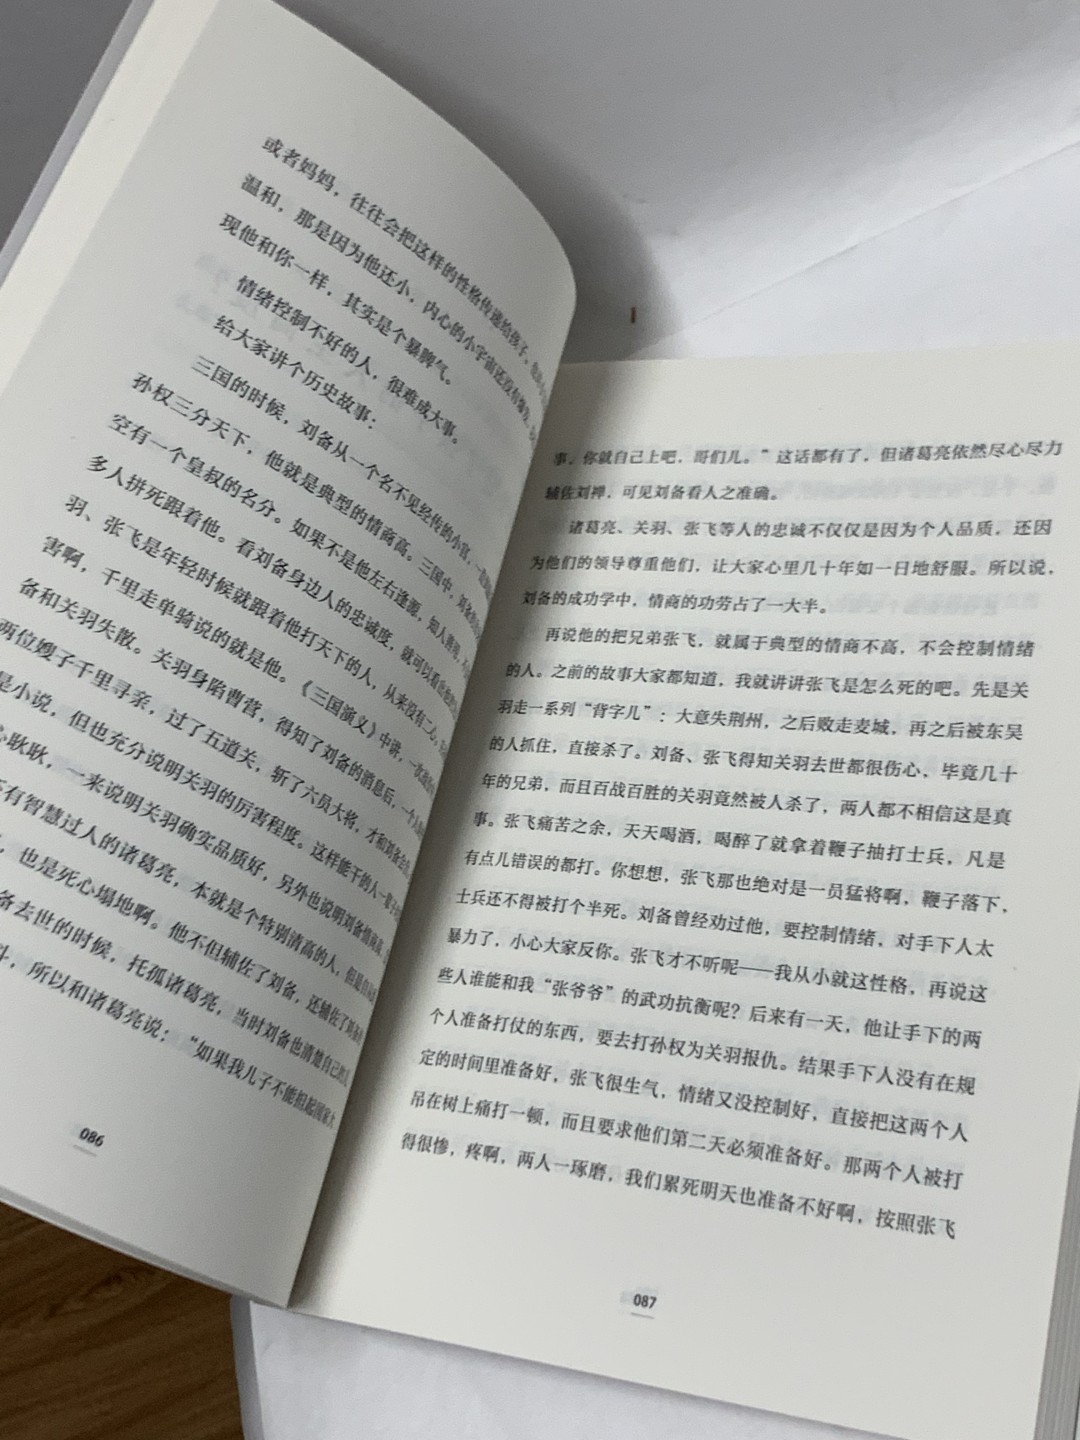 或者妈妈，往往会把这样的性格传递给孩子，
温和，那是因为他还小，内心的小宇宙还没有爆发，
现他和你一样，其实是个暴脾气。
情绪控制不好的人，很难成大事。
给大家讲个历史故事：
三国的时候，刘备从一个名不见经传的小官，一
孙权三分天下，他就是典型的情商高。三国中，刘备
空有一个皇叔的名分。如果不是他左右逢源，知人善
多人拼死跟着他。看刘备身边人的忠诚度，就可以看
羽、张飞是年轻时候就跟着他打天下的人，从来没有二心，
害啊，千里走单骑说的就是他。《三国演义》中讲，一次
备和关羽失散。关羽身陷曹营，得知了刘备的消息后，一个人
两位嫂子千里寻亲，过了五道关，斩了六员大将，才和刘备
是小说，但也充分说明关羽的厉害程度。这样能干的人一
心耿耿，一来说明关羽确实品质好，另外也说明刘备情商高，
有智慧过人的诸葛亮，本就是个特别清高的人，但是
，也是死心塌地啊。他不但辅佐了刘备，还辅佐了
备去世的时候，托孤诸葛亮，当时刘备也清楚自己的儿
斗，所以和诸葛亮说：“如果我儿子不能担起国家大
086
事，你就自己上吧，哥们儿。”这话都有了，但诸葛亮依然尽心尽力
辅佐刘禅，可见刘备看人之准确。
诸葛亮、关羽、张飞等人的忠诚不仅仅是因为个人品质，还因
为他们的领导尊重他们，让大家心里几十年如一日地舒服。所以说，
刘备的成功学中，情商的功劳占了一大半。
再说他的把兄弟张飞，就属于典型的情商不高，不会控制情绪
的人。之前的故事大家都知道，我就讲讲张飞是怎么死的吧。先是关
羽走一系列“背字儿”：大意失荆州，之后败走麦城，再之后被东吴
的人抓住，直接杀了。刘备、张飞得知关羽去世都很伤心，毕竟几十
年的兄弟，而且百战百胜的关羽竟然被人杀了，两人都不相信这是真
事。张飞痛苦之余，天天喝酒，喝醉了就拿着鞭子抽打士兵，凡是
有点儿错误的都打。你想想，张飞那也绝对是一员猛将啊，鞭子落下，
士兵还不得被打个半死。刘备曾经劝过他，要控制情绪，对手下人太
暴力了，小心大家反你。张飞才不听呢——我从小就这性格，再说这
些人谁能和我“张爷爷”的武功抗衡呢？后来有一天，他让手下的两
个人准备打仗的东西，要去打孙权为关羽报仇。结果手下人没有在规
定的时间里准备好，张飞很生气，情绪又没控制好，直接把这两个人
吊在树上痛打一顿，而且要求他们第二天必须准备好。那两个人被打
得很惨，疼啊，两人一琢磨，我们累死明天也准备不好啊，按照张飞
087